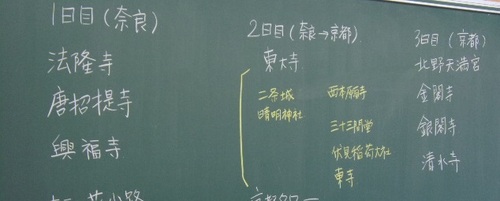 1日目(奈良)
法隆寺
唐招提寺
興福寺
2日目(奈良→京都)
東大寺
二条城
晴明神社
西本願寺
三十三間堂
伏見稲荷大社
東寺
3日目(京都)
北野天満宮
金閣寺
銀閣寺
清水寺